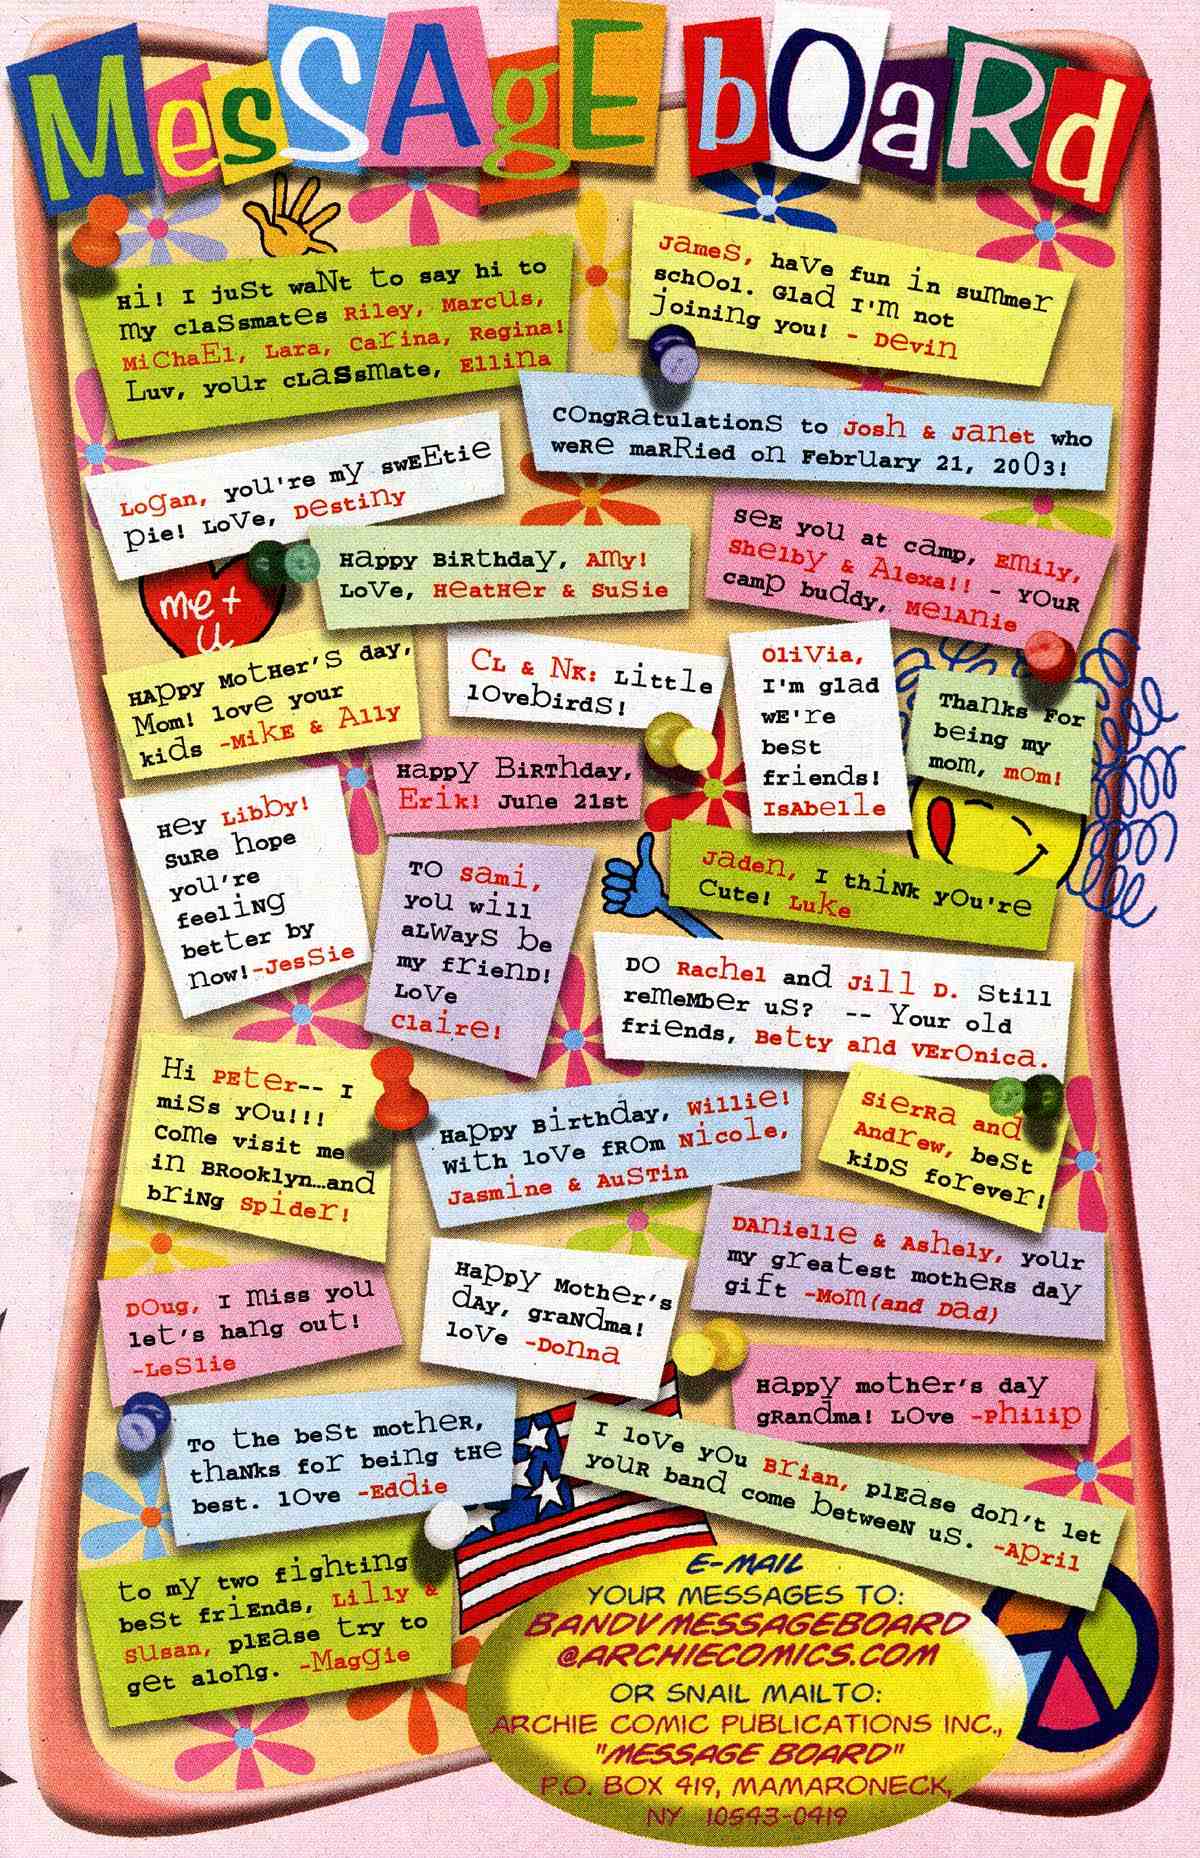 MesSAgE bOaRd
Hi! I juSt waNt to say hi to
my claSsmates Riley, MarcUs,
MiChaEl, Lara, Carina, Regina!
Luv, your cLaSsmate, ElliNa
JameS, haVe fun in summer
schOol. Glad I'm not
joining you! - Devin
COngRatulationS to Josh & Janet who
weRe maRRied on February 21, 2003!
LoGan, you're my swEEtie
pie! LoVe, Destiny
Happy BiRthday, Amy!
LoVe, HeatHer & SuSie
SeE you at camp, Emily,
Shelby & Alexa!! - YOuR
camp buddy, MelAnie
me +
u
HAppy MotHer's day,
Mom! love your
kids -MikE & Ally
CL & NK: Little
lOvebirdS!
OliVia,
I'm glad
wE're
beSt
friends!
IsAbelle
ThaNks For
being my
mom, mom!
Happy BiRThday,
Erik! June 21st
Hey Libby!
SuRe hope
you're
feeliNg
better by
now!-JesSie
TO Sami,
you will
aLWayS be
my frienD!
LoVe
Claire!
Jaden, I thiNk yOu're
Cute! Luke
DO Rachel and Jill D. Still
remeMber uS? -- Your old
friends, Betty and VErOnica.
Hi PEter-- I
miSs yOu!!!
CoMe visit me
in BRooklyn…and
briNg Spider!
Happy Birthday, Willie!
With loVe fROm Nicole,
Jasmine & AuSTin
SierRa and
Andrew, beSt
kiDS forever!
DAnielle & Ashely, your
my greatest motheRs day
gift -Mom(and Dad)
DOug, I miss you
let's hang out!
-LeSlie
Happy Mother's
dAy, graNdma!
loVe -Donna
Happy mother's day
gRandma! LOve -Philip
To the beSt motheR,
thaNks for being tHe
best. lOve -Eddie
I loVe yOu Brian, plEase don't let
youR band come betweeN uS. -April
to my two fighting
beSt friEnds, Lilly &
Susan, plEase try to
get along. -Maggie
E-MAIL
YOUR MESSAGES TO:
BANDVMESSAGEBOARD
@ARCHIECOMICS.COM
OR SNAIL MAILTO:
ARCHIE COMIC PUBLICATIONS INC.,
"MESSAGE BOARD"
P.O. BOX 419, MAMARONECK,
NY 10543-0419